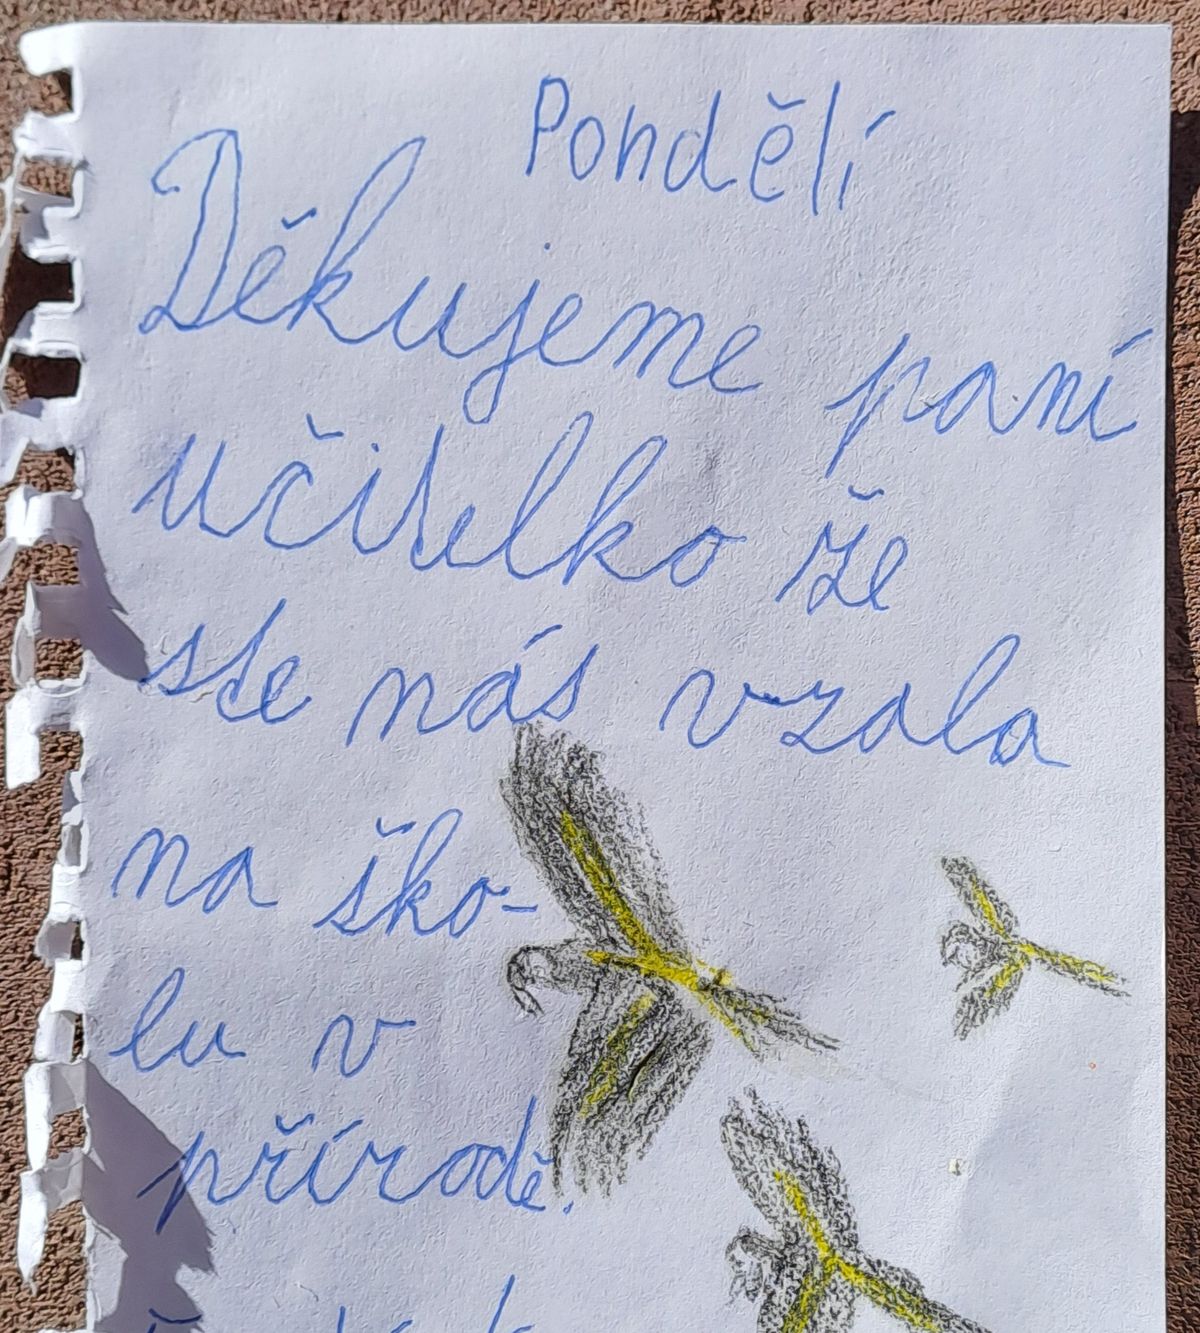 Pondělí
Děkujeme paní
učitelko že
ste nás vzala
na ško-
lu v
přírodě.